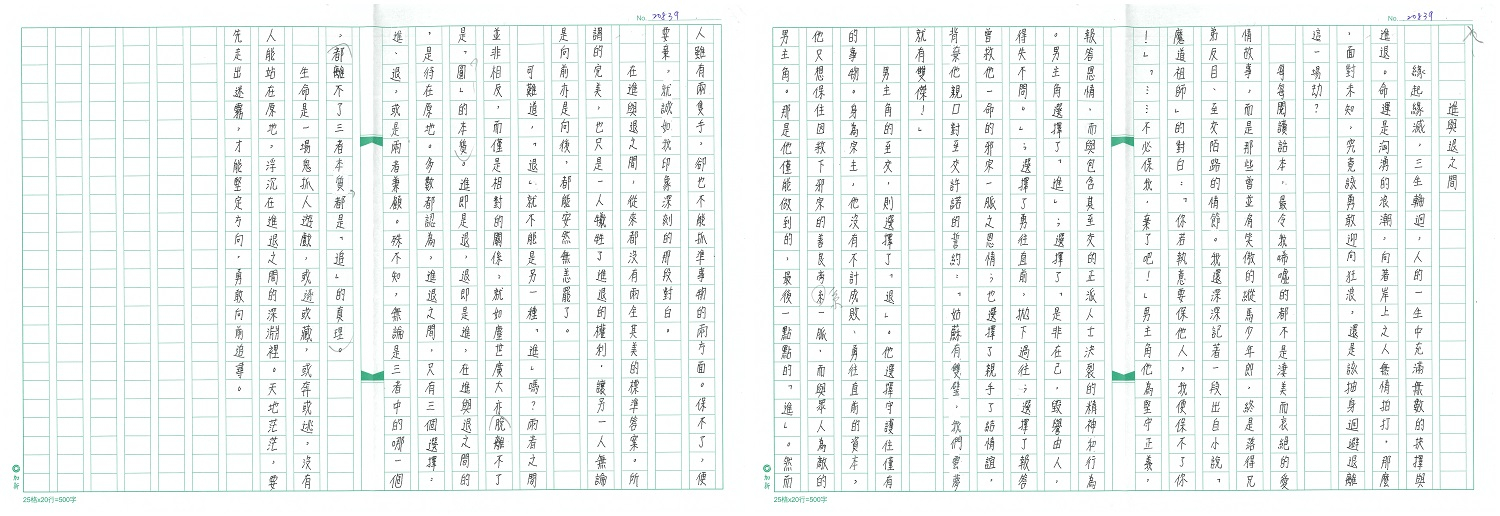 No. 20839
進與退之間
緣起緣滅,三生輪迴,人的一生中充滿無數的抉擇與
進退。命運是洶湧的浪潮,向著岸上之人無情拍打,那麼
,面對未知,究竟該勇敢迎向狂浪,還是該抽身迴避退離
這一場劫?
每每閱讀話本,最令我唏噓的都不是淒美而哀絕的愛
情故事,而是那些曾並肩笑傲的縱馬少年郎,終是落得兄
弟反目、至交陌路的情節。我還深深記著一段出自小說「
魔道祖師」的對白:「你若執意要保他人,我便保不了你
!」、「⋯⋯不必保我,棄了吧!」男主角他為堅守正義,
報答恩情,而與包含其至交的正派人士決裂的精神和行為
。男主角選擇了「進」;選擇了「是非在己,毀譽由人,
得失不問。」;選擇了勇往直前,拋下過往;選擇了報答
曾救他一命的邪宗一脈之恩情;也選擇了親手了結情誼,
背棄他親口對至交許諾的誓約:「姑蘇有雙璧,我們雲夢
就有雙傑!」
男主角的至交,則選擇了「退」。他選擇守護住僅有
的事物。身為宗主,他沒有不計成敗、勇往直前的資本,
他又想保住因救下邪宗的善良旁系一脈,而與眾人為敵的
男主角。那是他僅能做到的,最後一點點的「進」。然而
No. 20839
人雖有兩隻手,卻也不能抓準事物的兩方面。保不了,便
要棄,就誠如我印象深刻的那段對白。
在進與退之間,從來都沒有兩全其美的標準答案。所
謂的完美,也只是一人犧牲了進退的權利,讓另一人無論
是向前亦是向後,都能安然無恙罷了。
可難道,「退」就不能是另一種「進」嗎?兩者之間
並非相反,而僅是相對的關係;就如塵世廣大亦脫離不了
是「圓」的本質。進即是退,退即是進,在進與退之間的
,是待在原地。多數都認為,進退之間,只有三個選擇:
進、退,或是兩者兼顧。殊不知,無論是三者中的哪一個
,都離不了三者本質都是「進」的真理。
生命是一場鬼抓人遊戲,或逃或藏,或奔或逃,沒有
人能站在原地,浮沉在進退之間的深淵裡。天地茫茫,要
先走出迷霧,才能堅定方向,勇敢向前追尋。
25格x20行=500字
25格x20行=500字